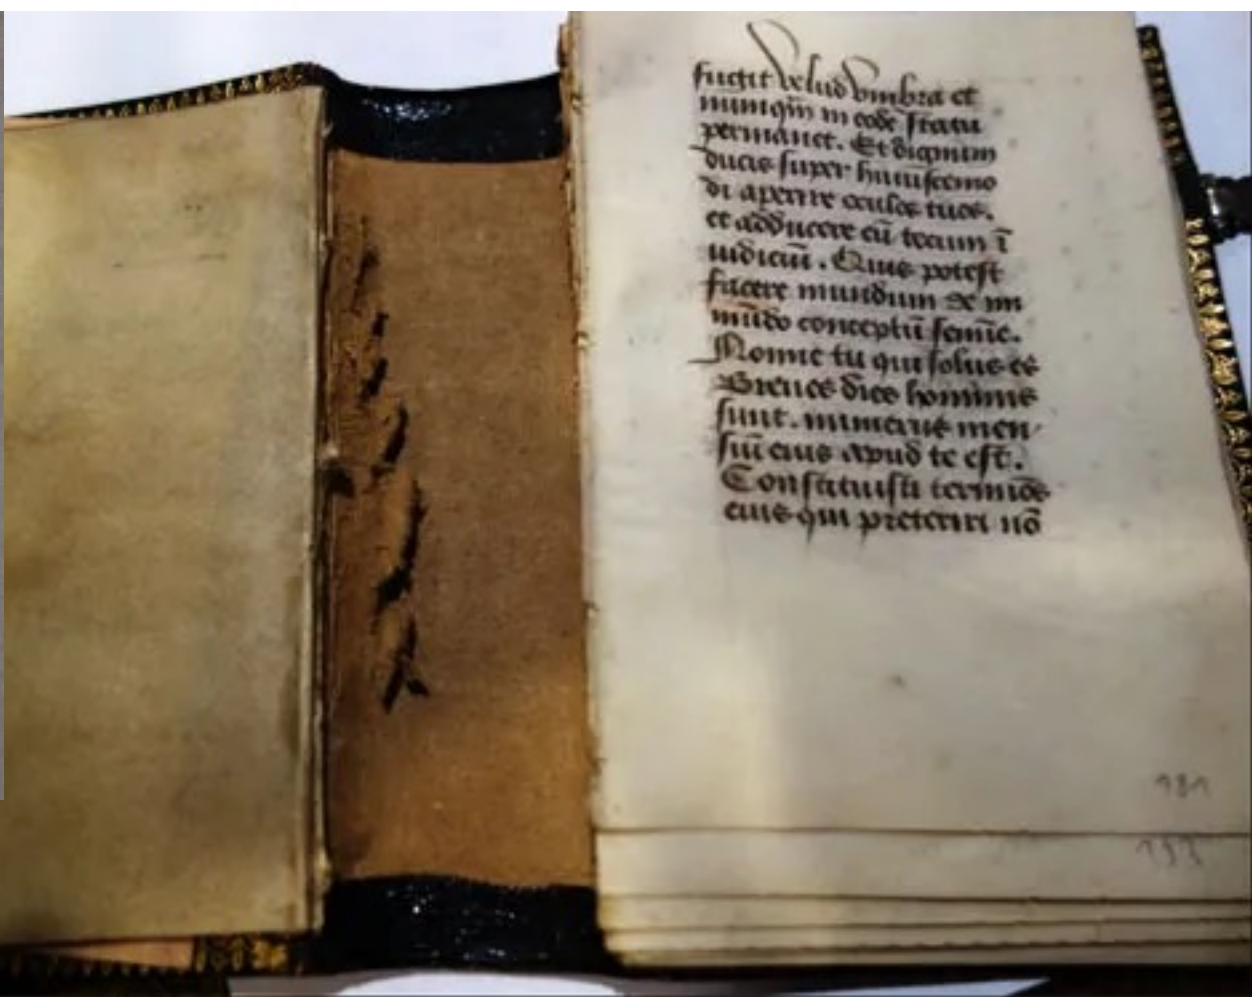 fugit velud vmbra et
numqm̄ in eodē statu
permanet. Et dignum
ducis super huiuscemo
di aperire oculos tuos.
et adducere cū tecum ī
iudiciū. Quis potest
facere mundum de im
mūdo conceptū semīe.
Nonne tu qui solus es
Breues dies hominis
sunt. numerus men
siū eius apud te est.
Constituisti terminos
eius qui preteriri nō
191
193